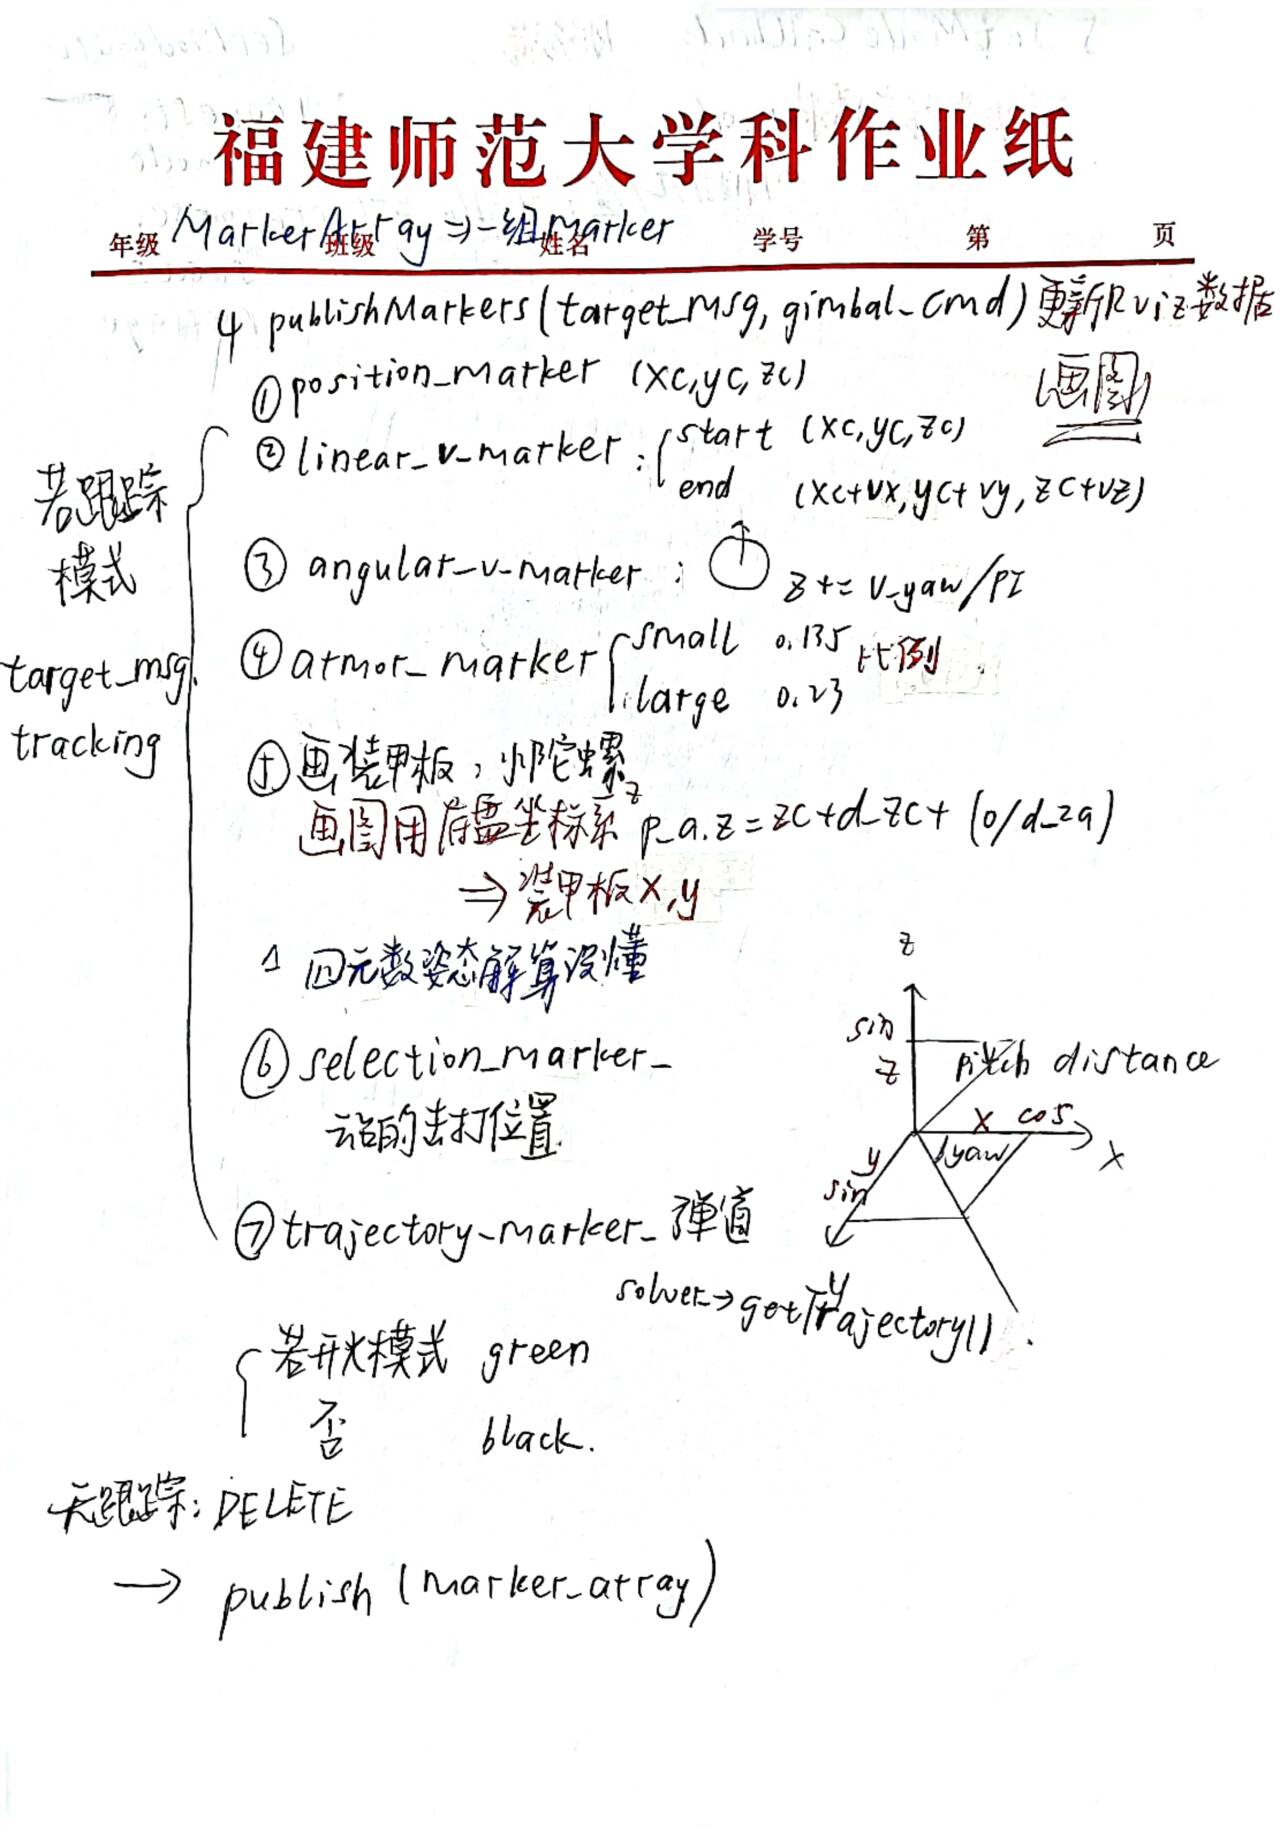 福建师范大学科作业纸
年级 班级 姓名 学号 第 页
MarkerArray ⇒ 一组marker
4 publishMarkers(target_msg, gimbal_cmd) 更新Rviz数据
(画图)
①position_marker (xc,yc,zc)
②linear_v_marker : start (xc,yc,zc)
end (xc+vx,yc+vy,zc+vz)
若跟踪
模式
target_msg.
tracking
③ angular_v_marker : z += v_yaw/PI
④armor_marker small 0.135 比例
large 0.23
⑤画装甲板,小陀螺
画图用底盘坐标系 z p_a.z = zc+d_zc+ (0/d_za)
⇒ 装甲板x,y
1 四元数姿态解算没懂
⑥selection_marker_
云台的击打位置.
z
sin
z
pitch distance
x cos
x
yaw
y
sin
y
⑦trajectory_marker_ 弹道
solver→getTrajectory()
若开火模式 green
否 black.
无跟踪: DELETE
→ publish (marker_array)